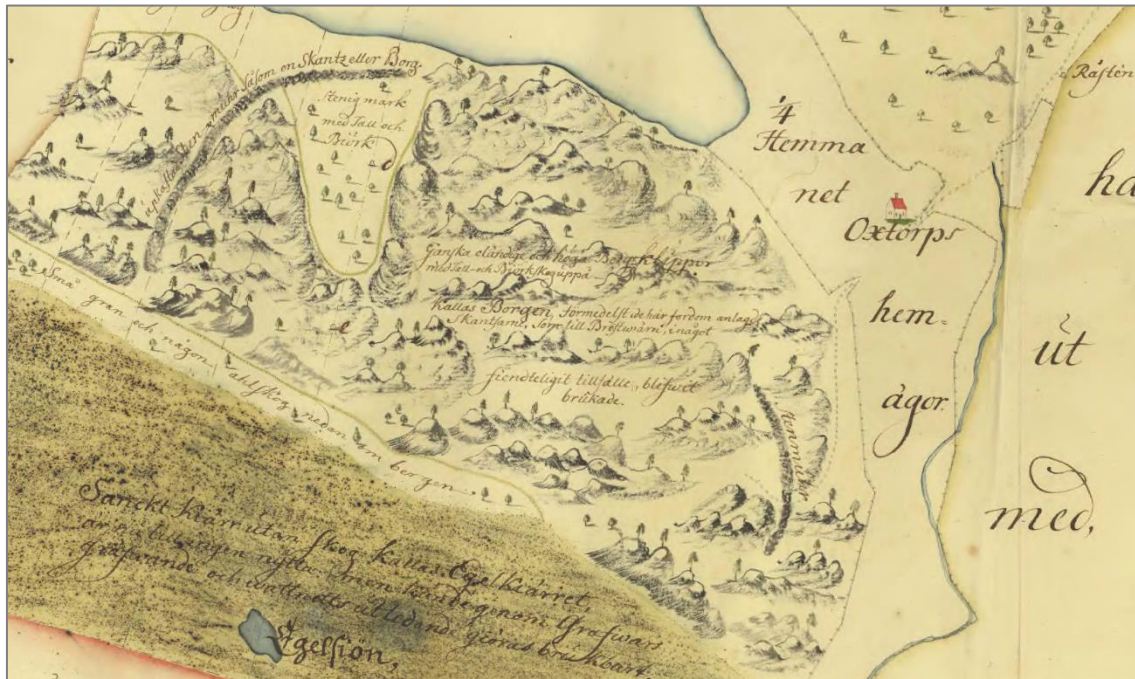 såsom en Skantz eller Borg.
Stenig mark
med Tall och
Biörk
Ganska eländige och höga Bergsklippor
med Tall- och Biörkskog uppå
Kallas Borgen, formedelst de här fordom anlagde
Skantsarne, som till Bröstwärn, i något
fiendteligit tillfälle, blefwit
brukade.
Stenmuhr
Små gran och någon ahlskog nedan om bergen
Sanckt Kiärr utan skog kallas Egelkiärret,
är nu till ingen nytta, men kunde genom Grafwars
gräfwande och wattnets utledande giöras brukbart.
Igelsiön,
1/4
Hemma
net
Oxtorps
hem-
ägor.
Råsten
ha
ut
med,